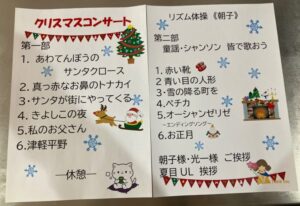 クリスマスコンサート
第一部
1. あわてんぼうの
サンタクロース
2. 真っ赤なお鼻のトナカイ
3・サンタが街にやってくる
4. きよしこの夜
5. 私のお父さん
6. 津軽平野
―休憩―
リズム体操 《朝子》
第二部
童謡・シャンソン 皆で歌おう
1. 赤い靴
2 青い目の人形
3・雪の降る町を
4・ペチカ
5.オーシャンゼリゼ
～エンディングソング～
6.お正月
朝子様・光一様 ご挨拶
夏目UL 挨拶